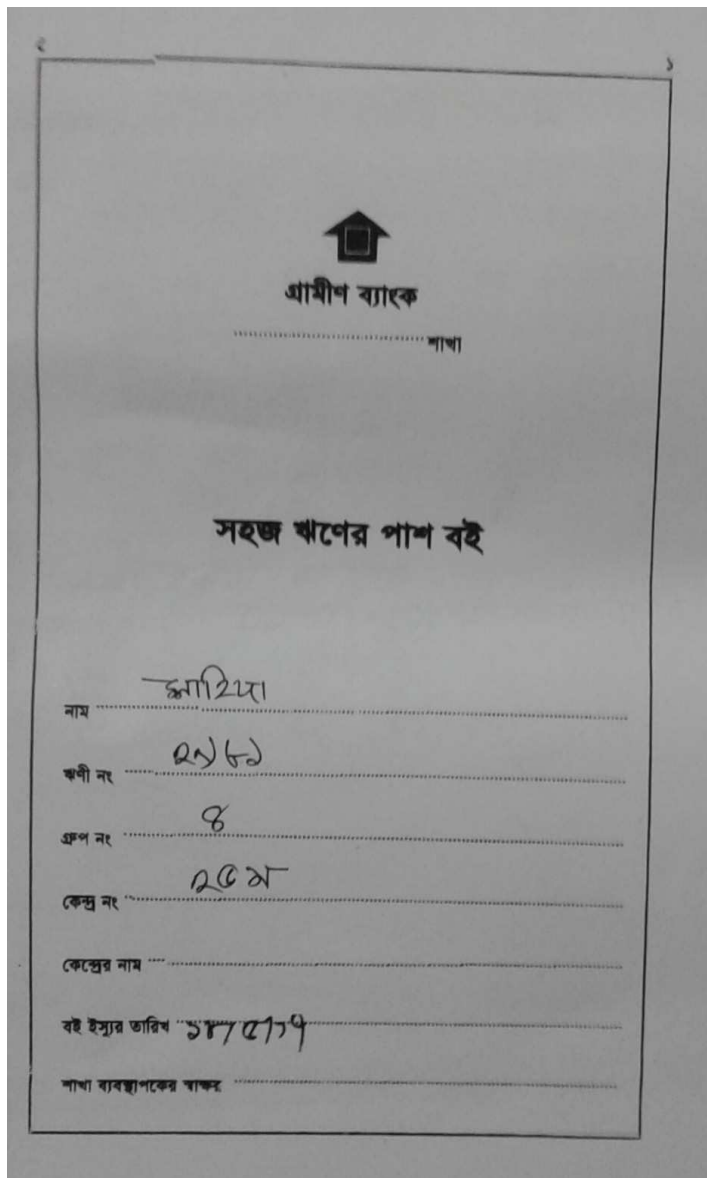 ১
গ্রামীণ ব্যাংক
....................................শাখা
সহজ ঋণের পাশ বই
নাম
ঋণী নং
গ্রুপ নং ৪
কেন্দ্র নং ২৫ ম
কেন্দ্রের নাম
বই ইস্যুর তারিখ
শাখা ব্যবস্থাপকের স্বাক্ষর